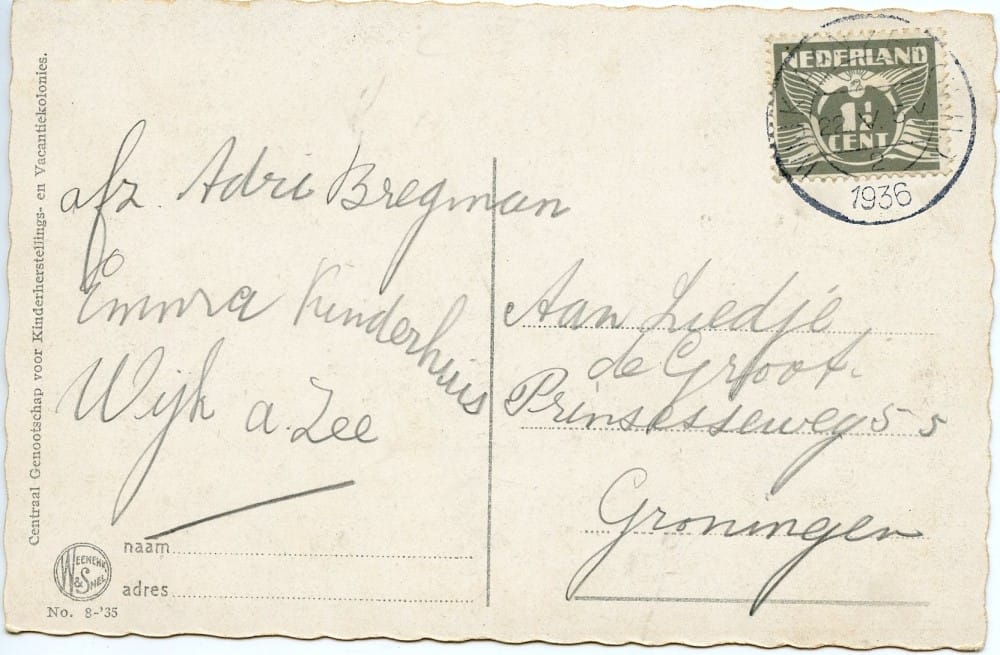 Centraal Genootschap voor Kinderherstellings- en Vacantiekolonies.
afz. Adri Bregman
Emma Kinderhuis
Wijk a. Zee
naam
adres
WEENENK & SNEL
No. 8-'35
NEDERLAND
1½
CENT
22 V
1936
Aan Liedje
de Groot.
Prinsesseweg 55
Groningen